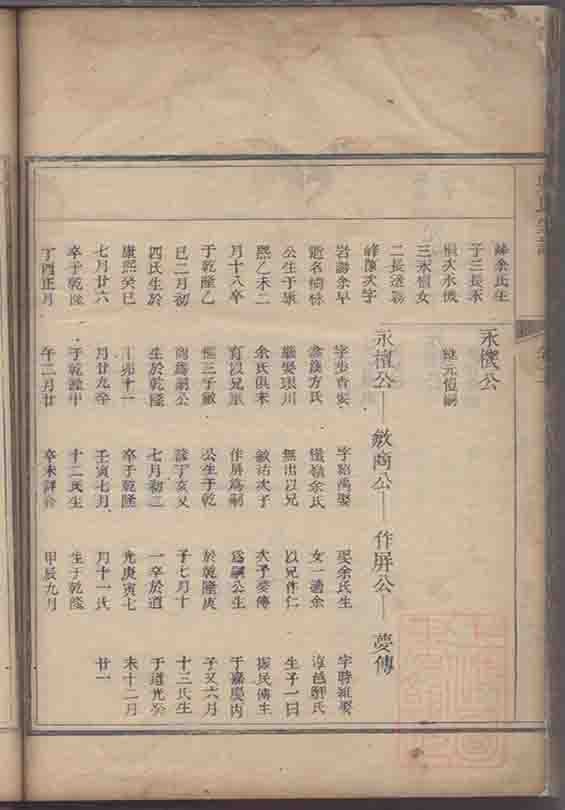 峰余氏生
子三長永
次永機
三永檀女
二長適
峰次字
岩余早
逝名樹棟
公生于康
熙乙未二
月十八卒
于乾隆乙
巳二月初
四氏生於
康熙癸巳
七月廿六
卒于乾隆
丁酉正月
永機公
元恒嗣
永檀公
敏商公
作屏公
夢傳
字步青娶
方氏
繼娶琅川
余氏俱未
育以兄
恒三子敏
商爲嗣公
生於乾隆
丁卯十一
月廿九卒
于乾隆甲
午二月廿
字紹禹娶
嶺余氏
無出以兄
敏沽次子
作屏爲嗣
公生于乾
隆丁亥又
七月初三
卒于乾隆
壬寅七月
十二氏生
卒未詳
娶余氏生
女一適余
以兄作仁
次子夢傳
爲嗣公生
於乾隆庚
子七月十
一卒於道
光庚寅七
月十一氏
生于乾隆
甲辰九月
字時雍娶
淳邑氏
生子一曰
振民傳生
于嘉慶丙
子又六月
十三氏生
于道光癸
未十二月
廿一